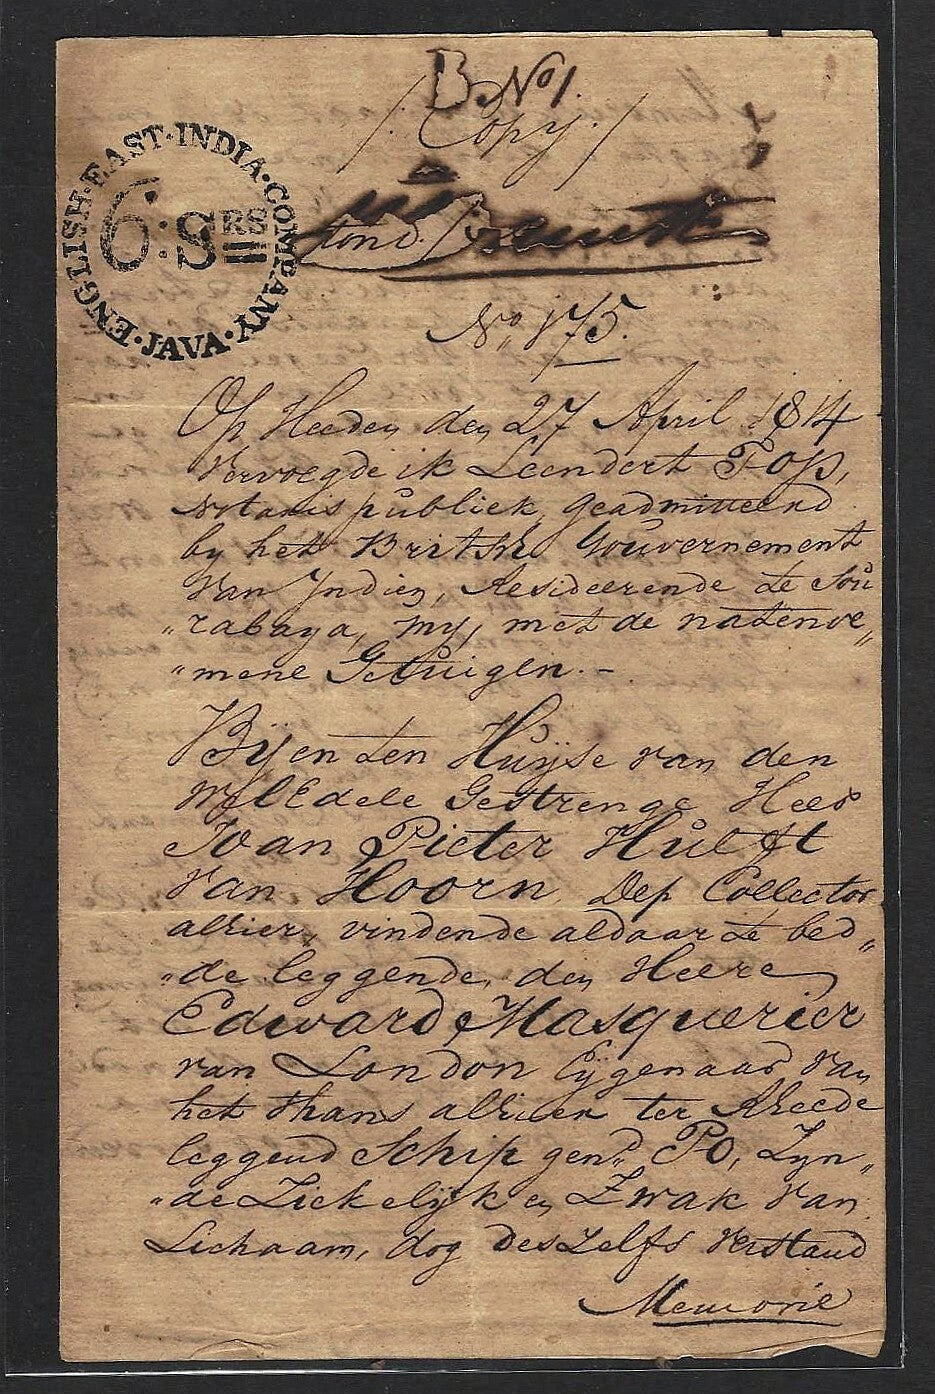 B No 1.
/. Copy. /
ENGLISH·EAST·INDIA·COMPANY·JAVA·
6:SRS
tond.
No. 175.
Op Heeden den 27 April 1814
vervoegde ik Leendert Fop,
Notaris publiek, geadmitteerd
by het Britsh Gouvernement
van Indien, Resideerende te Sou
"rabaya, my, met de natenoe"
"mene Getuigen. -
Bijen ten Huijse van den
WelEdele Gestrenge Heer
Ivan Pieter Hulft
van Hoorn Dep Collector
alhier, vindende aldaar te bed"
"de leggende, den Heere
Edward Masquerier
van London Eijgenaar van
het thans alhier ter Rheede
leggend Schip gend. Po, Zyn"
"de Ziekelijk en Zwak van
Lichaam, dog deszelfs Verstand
Memorie